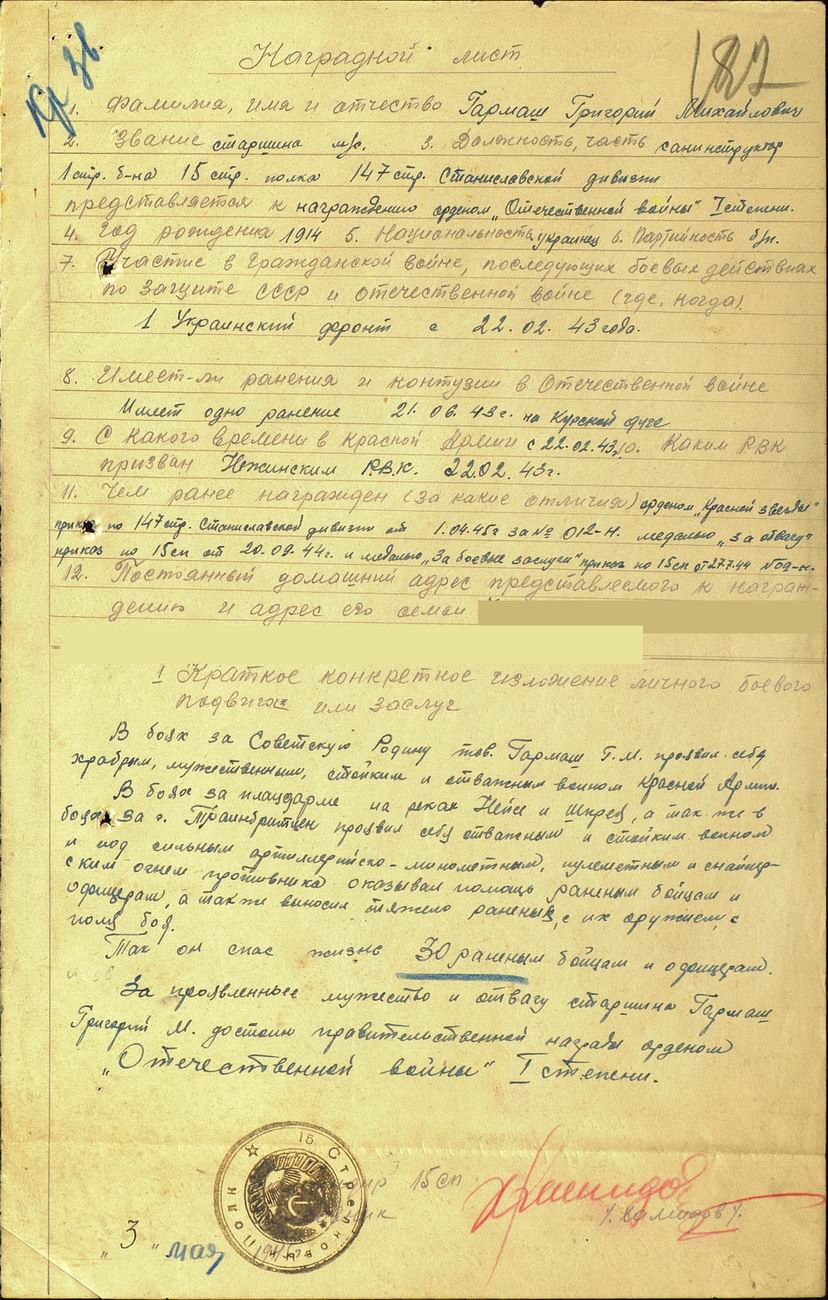 187
Наградной лист
1. Фамилия, имя и отчество Гармаш Григорий Михайлович
2. Звание старшина м/с. 3. Должность, часть санинструктор
1 стр. б-на 15 стр. полка 147 стр. Станиславской дивизии
представляется к награждению орденом „Отечественной войны" I степени.
4. Год рождения 1914 5. Национальность украинец 6. Партийность б/п.
7. Участие в Гражданской войне, последующих боевых действиях
по защите СССР и отечественной войне (где, когда)
1 Украинский фронт с 22.02.43 года.
8. Имеет-ли ранения и контузии в Отечественной войне
Имеет одно ранение 21.06.43 г. на Курской дуге
9. С какого времени в Красной Армии с 22.02.43 10. Каким РВК
призван Нежинским Р.В.К. 22.02.43 г.
11. Чем ранее награжден (за какие отличия) орденом „Красной звезды"
приказ по 147 стр. Станиславской дивизии от 1.04.45 г за № 012-н. медалью „за отвагу"
приказ по 15 сп от 20.09.44 г. и медалью „За боевые заслуги" приказ по 15 сп от 27.7.44
12. Постоянный домашний адрес представляемого к награж-
дению и адрес его семьи
1 Краткое конкретное изложение личного боевого
подвига или заслуг
В боях за Советскую Родину тов. Гармаш Г.М. проявил себя
храбрым, мужественным, стойким и отважным воином Красной Армии.
В боях за плацдарме на реках Нейсе и Шпрее, а так же в
боях за г. Траинбритцен проявил себя отважным и стойким воином
и под сильным артиллерийско-минометным, пулеметным и снайпер-
ским огнем противника оказывал помощь раненым бойцам и
офицерам, а также выносил тяжело раненых, с их оружием, с
поля боя.
Так он спас жизнь 30 раненым бойцам и офицерам.
За проявленное мужество и отвагу старшина Гармаш
Григорий М. достоин правительственной награды орденом
„Отечественной войны" I степени.
15 Стрелковый полк
15 сп
„3" мая